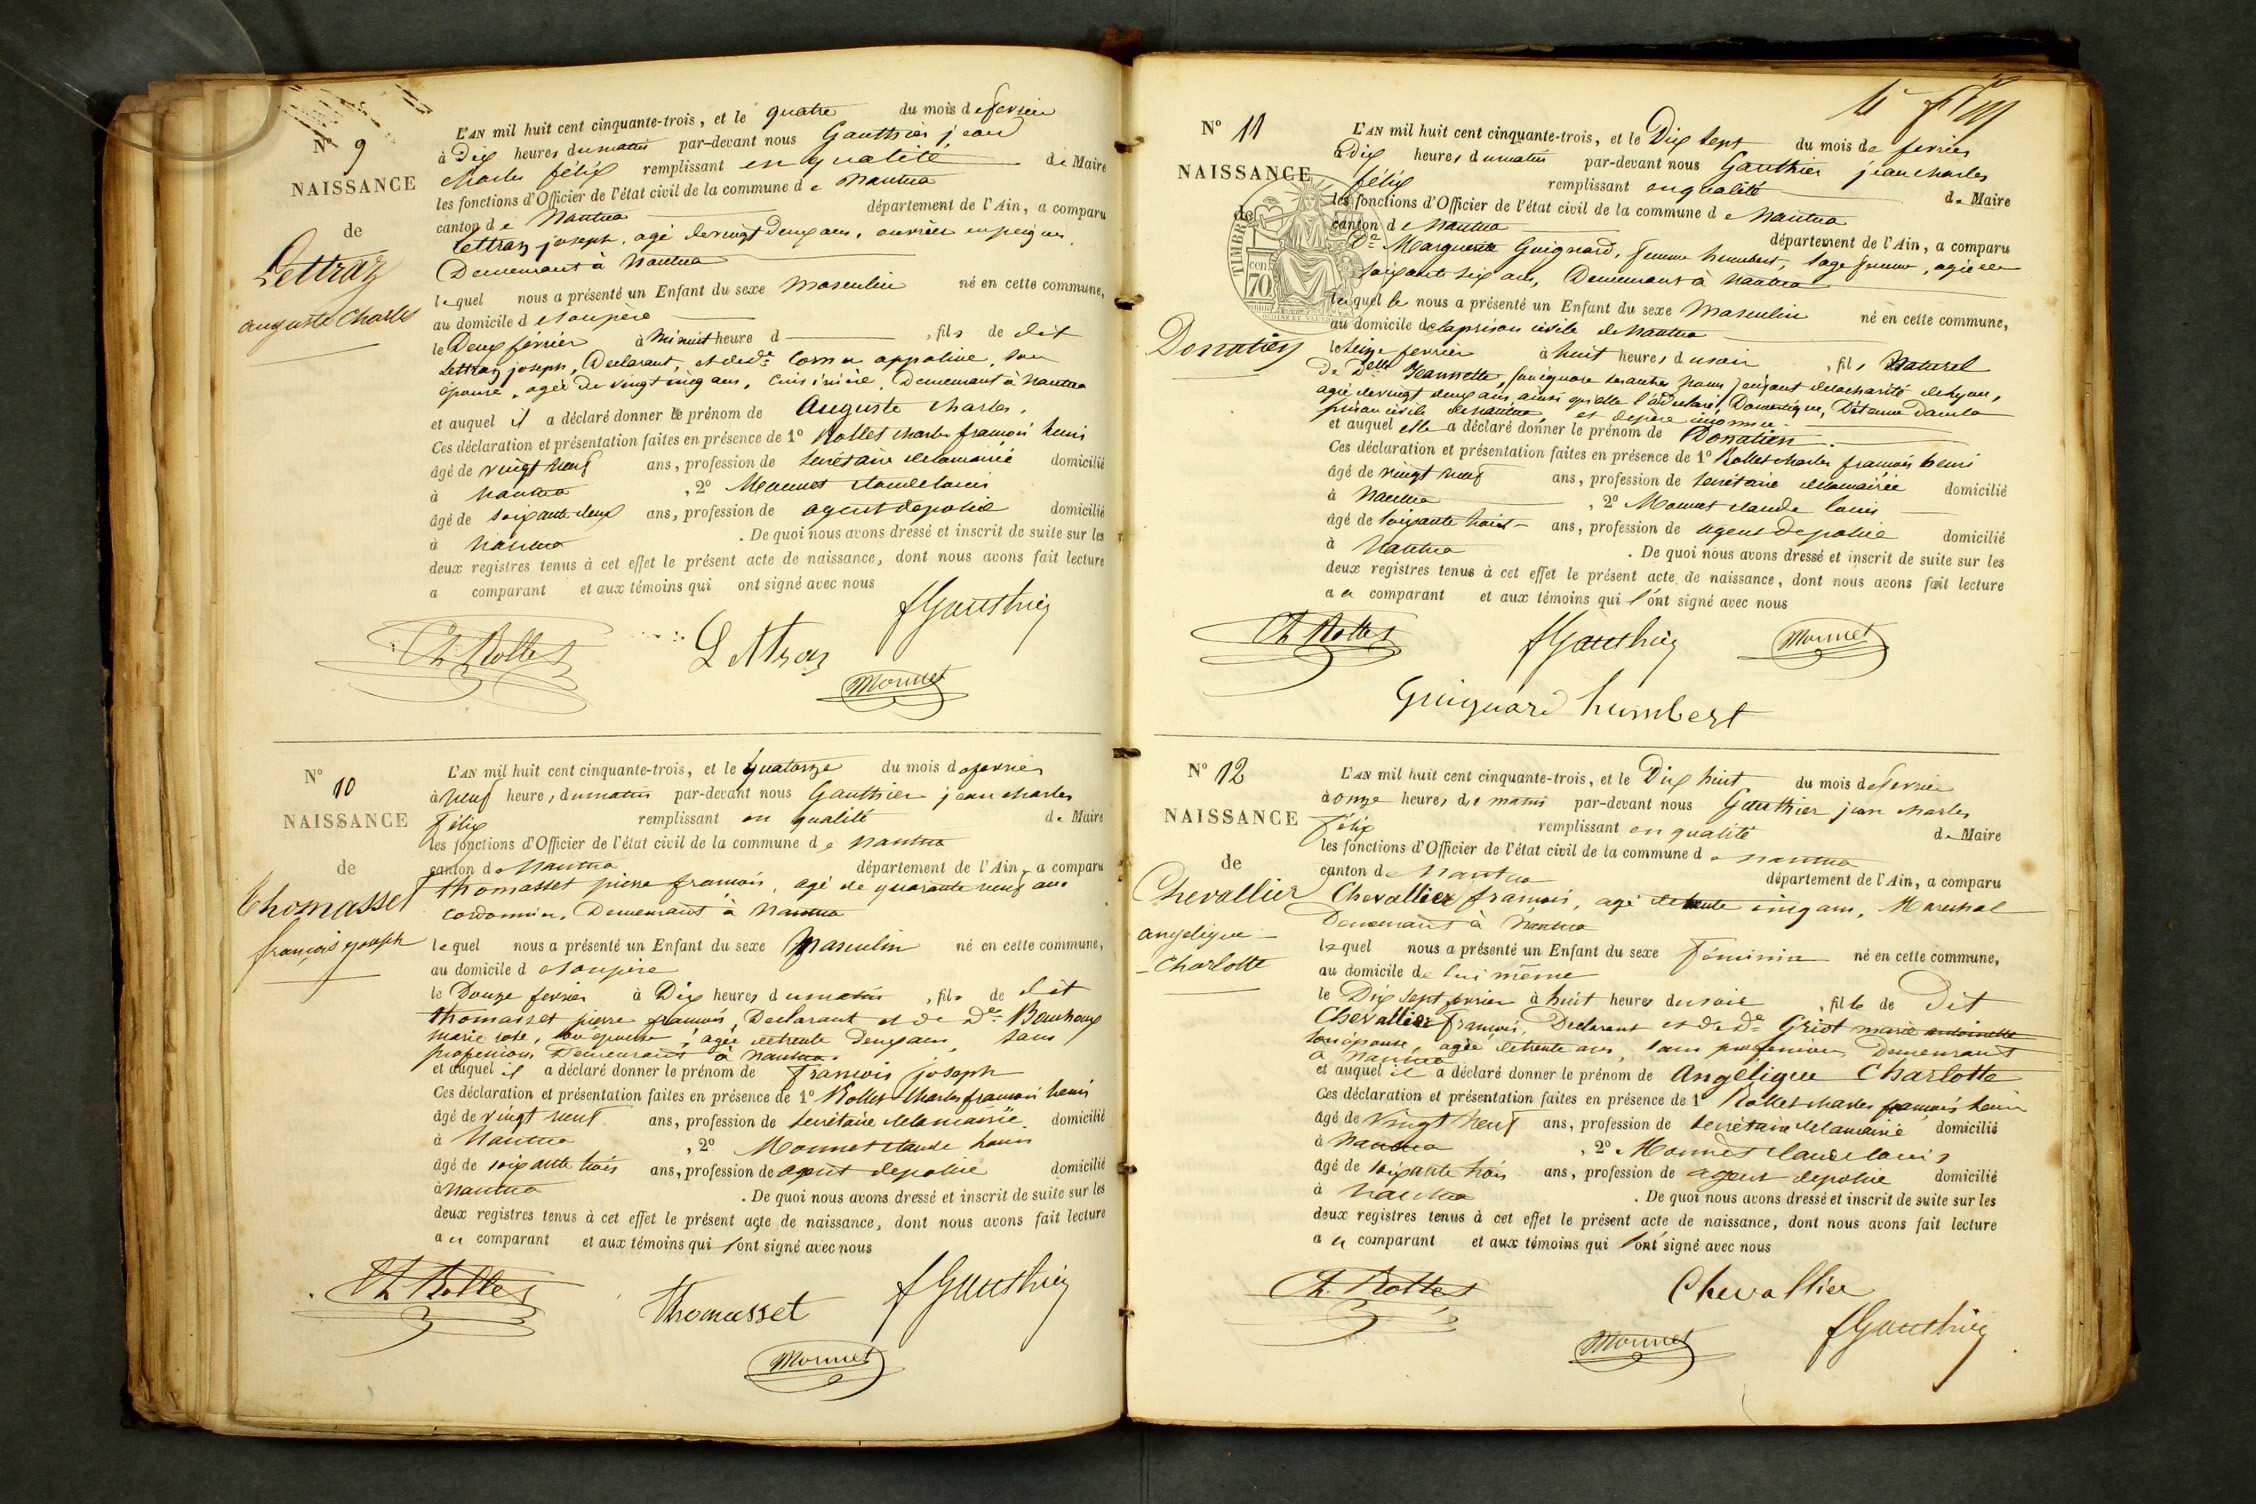 N° 9
NAISSANCE
de
Lettraz
auguste Charles
L'AN mil huit cent cinquante-trois, et le quatre du mois de fevrier
à Dix heures du matin par-devant nous Gauthier jean
charles félix remplissant en qualité de Maire
les fonctions d'Officier de l'état civil de la commune de Nantua
canton de Nantua département de l'Ain, a comparu
Lettraz joseph, agé de vingt deux ans, ouvrier en peignes,
Demeurant à Nantua
lequel nous a présenté un Enfant du sexe Masculin né en cette commune,
au domicile de son père
le Deux février à Minuit heure d , fils de dit
Lettraz joseph, Declarant, et de de appoline, son
épouse, agée de vingt cinq ans, Cuisinière, Demeurant à Nantua
et auquel il a déclaré donner le prénom de Auguste Charles.
Ces déclaration et présentation faites en présence de 1° Rollet charles françois henri
âgé de vingt neuf ans, profession de secrétaire de la mairie domicilié
à Nantua , 2° Monnet claude louis
âgé de soixante deux ans, profession de agent de police domicilié
à Nantua . De quoi nous avons dressé et inscrit de suite sur les
deux registres tenus à cet effet le présent acte de naissance, dont nous avons fait lecture
a comparant et aux témoins qui ont signé avec nous
fGauthier
Ch Rollet Lettraz
Monnet
N° 10
NAISSANCE
de
Thomasset
françois joseph
L'AN mil huit cent cinquante-trois, et le quatorze du mois de fevrier
à Neuf heures du matin par-devant nous Gauthier jean charles
Félix remplissant en qualité de Maire
les fonctions d'Officier de l'état civil de la commune de Nantua
canton de Nantua département de l'Ain, a comparu
thomasset pierre françois, agé de quarante neuf ans
cordonnier, Demeurant à Nantua
lequel nous a présenté un Enfant du sexe Masculin né en cette commune,
au domicile de son père
le Douze fevrier à Dix heures du matin , fils de dit
thomasset pierre françois, Declarant et de de
marie rose, son épouse, agée de trente deux ans, sans
profession, Demeurant à Nantua.
et auquel il a déclaré donner le prénom de François joseph
Ces déclaration et présentation faites en présence de 1° Rollet charles françois henri
âgé de vingt neuf ans, profession de secrétaire de la mairie domicilié
à Nantua , 2° Monnet claude louis
âgé de soixante trois ans, profession de agent de police domicilié
à Nantua . De quoi nous avons dressé et inscrit de suite sur les
deux registres tenus à cet effet le présent acte de naissance, dont nous avons fait lecture
au comparant et aux témoins qui l'ont signé avec nous
Ch Rollet Thomasset fGauthier
Monnet
N° 11
NAISSANCE
de
Donatien
TIMBRE
70
L'AN mil huit cent cinquante-trois, et le Dix sept du mois de fevrier
à dix heures du matin par-devant nous Gauthier jean charles
félix remplissant en qualité de Maire
les fonctions d'Officier de l'état civil de la commune de Nantua
canton de Nantua département de l'Ain, a comparu
De Marguerite Guignard, femme humbert, sage femme, agée de
soixante six ans, Demeurant à Nantua
lequel nous a présenté un Enfant du sexe Masculin né en cette commune,
au domicile de la prison civile de Nantua
le seize fevrier à huit heures du soir , fils Naturel
de Delle Jeannette, enfant de la charité de Lyon,
agée de vingt deux ans, ainsi qu'elle l'a déclaré, Domestique, Détenue dans la
prison civile de Nantua et de père inconnu.
et auquel elle a déclaré donner le prénom de Donatien
Ces déclaration et présentation faites en présence de 1° Rollet charles françois henri
âgé de vingt neuf ans, profession de secrétaire de la mairie domicilié
à Nantua , 2° Monnet claude louis
âgé de soixante trois ans, profession de agent de police domicilié
à Nantua . De quoi nous avons dressé et inscrit de suite sur les
deux registres tenus à cet effet le présent acte de naissance, dont nous avons fait lecture
au comparant et aux témoins qui l'ont signé avec nous
Ch Rollet fGauthier Monnet
Guignard humbert
N° 12
NAISSANCE
de
Chevallier
angelique
Charlotte
L'AN mil huit cent cinquante-trois, et le Dix huit du mois de fevrier
à onze heures du matin par-devant nous Gauthier jean charles
Félix remplissant en qualité de Maire
les fonctions d'Officier de l'état civil de la commune de Nantua
canton de Nantua département de l'Ain, a comparu
Chevallier françois, agé de trente cinq ans, Marechal
Demeurant à Nantua
lequel nous a présenté un Enfant du sexe Féminin né en cette commune,
au domicile de lui même
le Dix sept fevrier à huit heures du soir , fille de Dit
Chevallier François, Declarant et de de Griot marie antoinette
son épouse, agée de trente ans, sans profession, Demeurant
à Nantua
et auquel il a déclaré donner le prénom de Angélique Charlotte
Ces déclaration et présentation faites en présence de 1° Rollet charles françois henri
âgé de Vingt Neuf ans, profession de secrétaire de la mairie domicilié
à Nantua , 2° Monnet claude louis
âgé de soixante trois ans, profession de agent de police domicilié
à Nantua . De quoi nous avons dressé et inscrit de suite sur les
deux registres tenus à cet effet le présent acte de naissance, dont nous avons fait lecture
au comparant et aux témoins qui l'ont signé avec nous
Ch. Rollet Chevallier
Monnet fGauthier